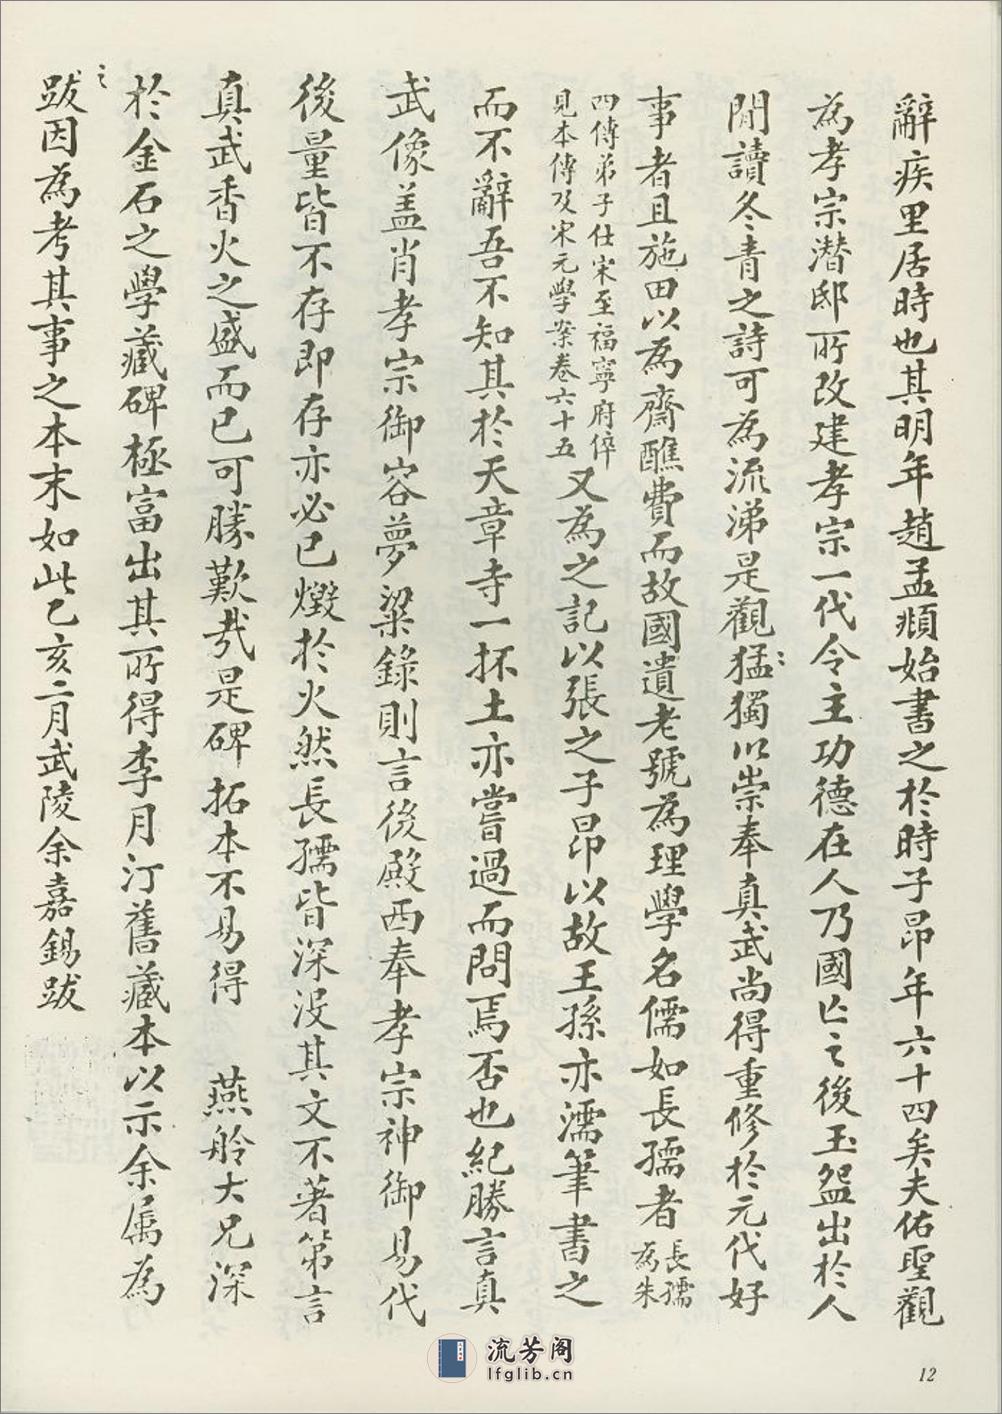 辭疾里居時也其明年趙孟頫始書之於時子昂年六十四矣夫佑聖觀
為孝宗潛邸所改建孝宗一代令主功德在人乃國亡之後玉盌出於人
閒讀冬青之詩可為流涕是觀猛獨以崇奉真武尚得重修於元代好
事者且施田以為齋醮費而故國遺老號為理學名儒如長孺者長孺為朱
四傳弟子仕宋至福寧府倅見本傳及宋元學案卷六十五又為之記以張之子昂以故王孫亦濡筆書之
而不辭吾不知其於天章寺一抔土亦嘗過而問焉否也紀勝言真
武像盖肖孝宗御容夢粱錄則言後殿西奉孝宗神御易代
後量皆不存即存亦必已燬於火然長孺皆深沒其文不著第言
真武香火之盛而已可勝歎哉是碑拓本不易得 燕舲大兄深
於金石之學藏碑極富出其所得李月汀舊藏本以示余属為
之跋因為考其事之本末如此乙亥二月武陵余嘉錫跋
流芳阁
lfglib.cn
12